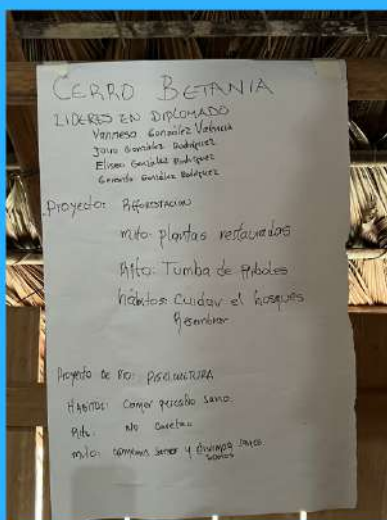 CERRO BETANIA
LIDERES EN DIPLOMADO
Vannesa González Valencia
Jairo González Rodríguez
Eliseo González Rodríguez
Gerardo González Rodríguez
Proyecto: Reforestacion
mito: plantas restauradas
Rito: Tumba de Arboles
hábitos: Cuidar el bosques
Resembrar
Proyecto de Rio: PISCICULTURA
HABITOS: Comer pescado sano.
Rito: No
mito: comemos sanos y vivimos sanos